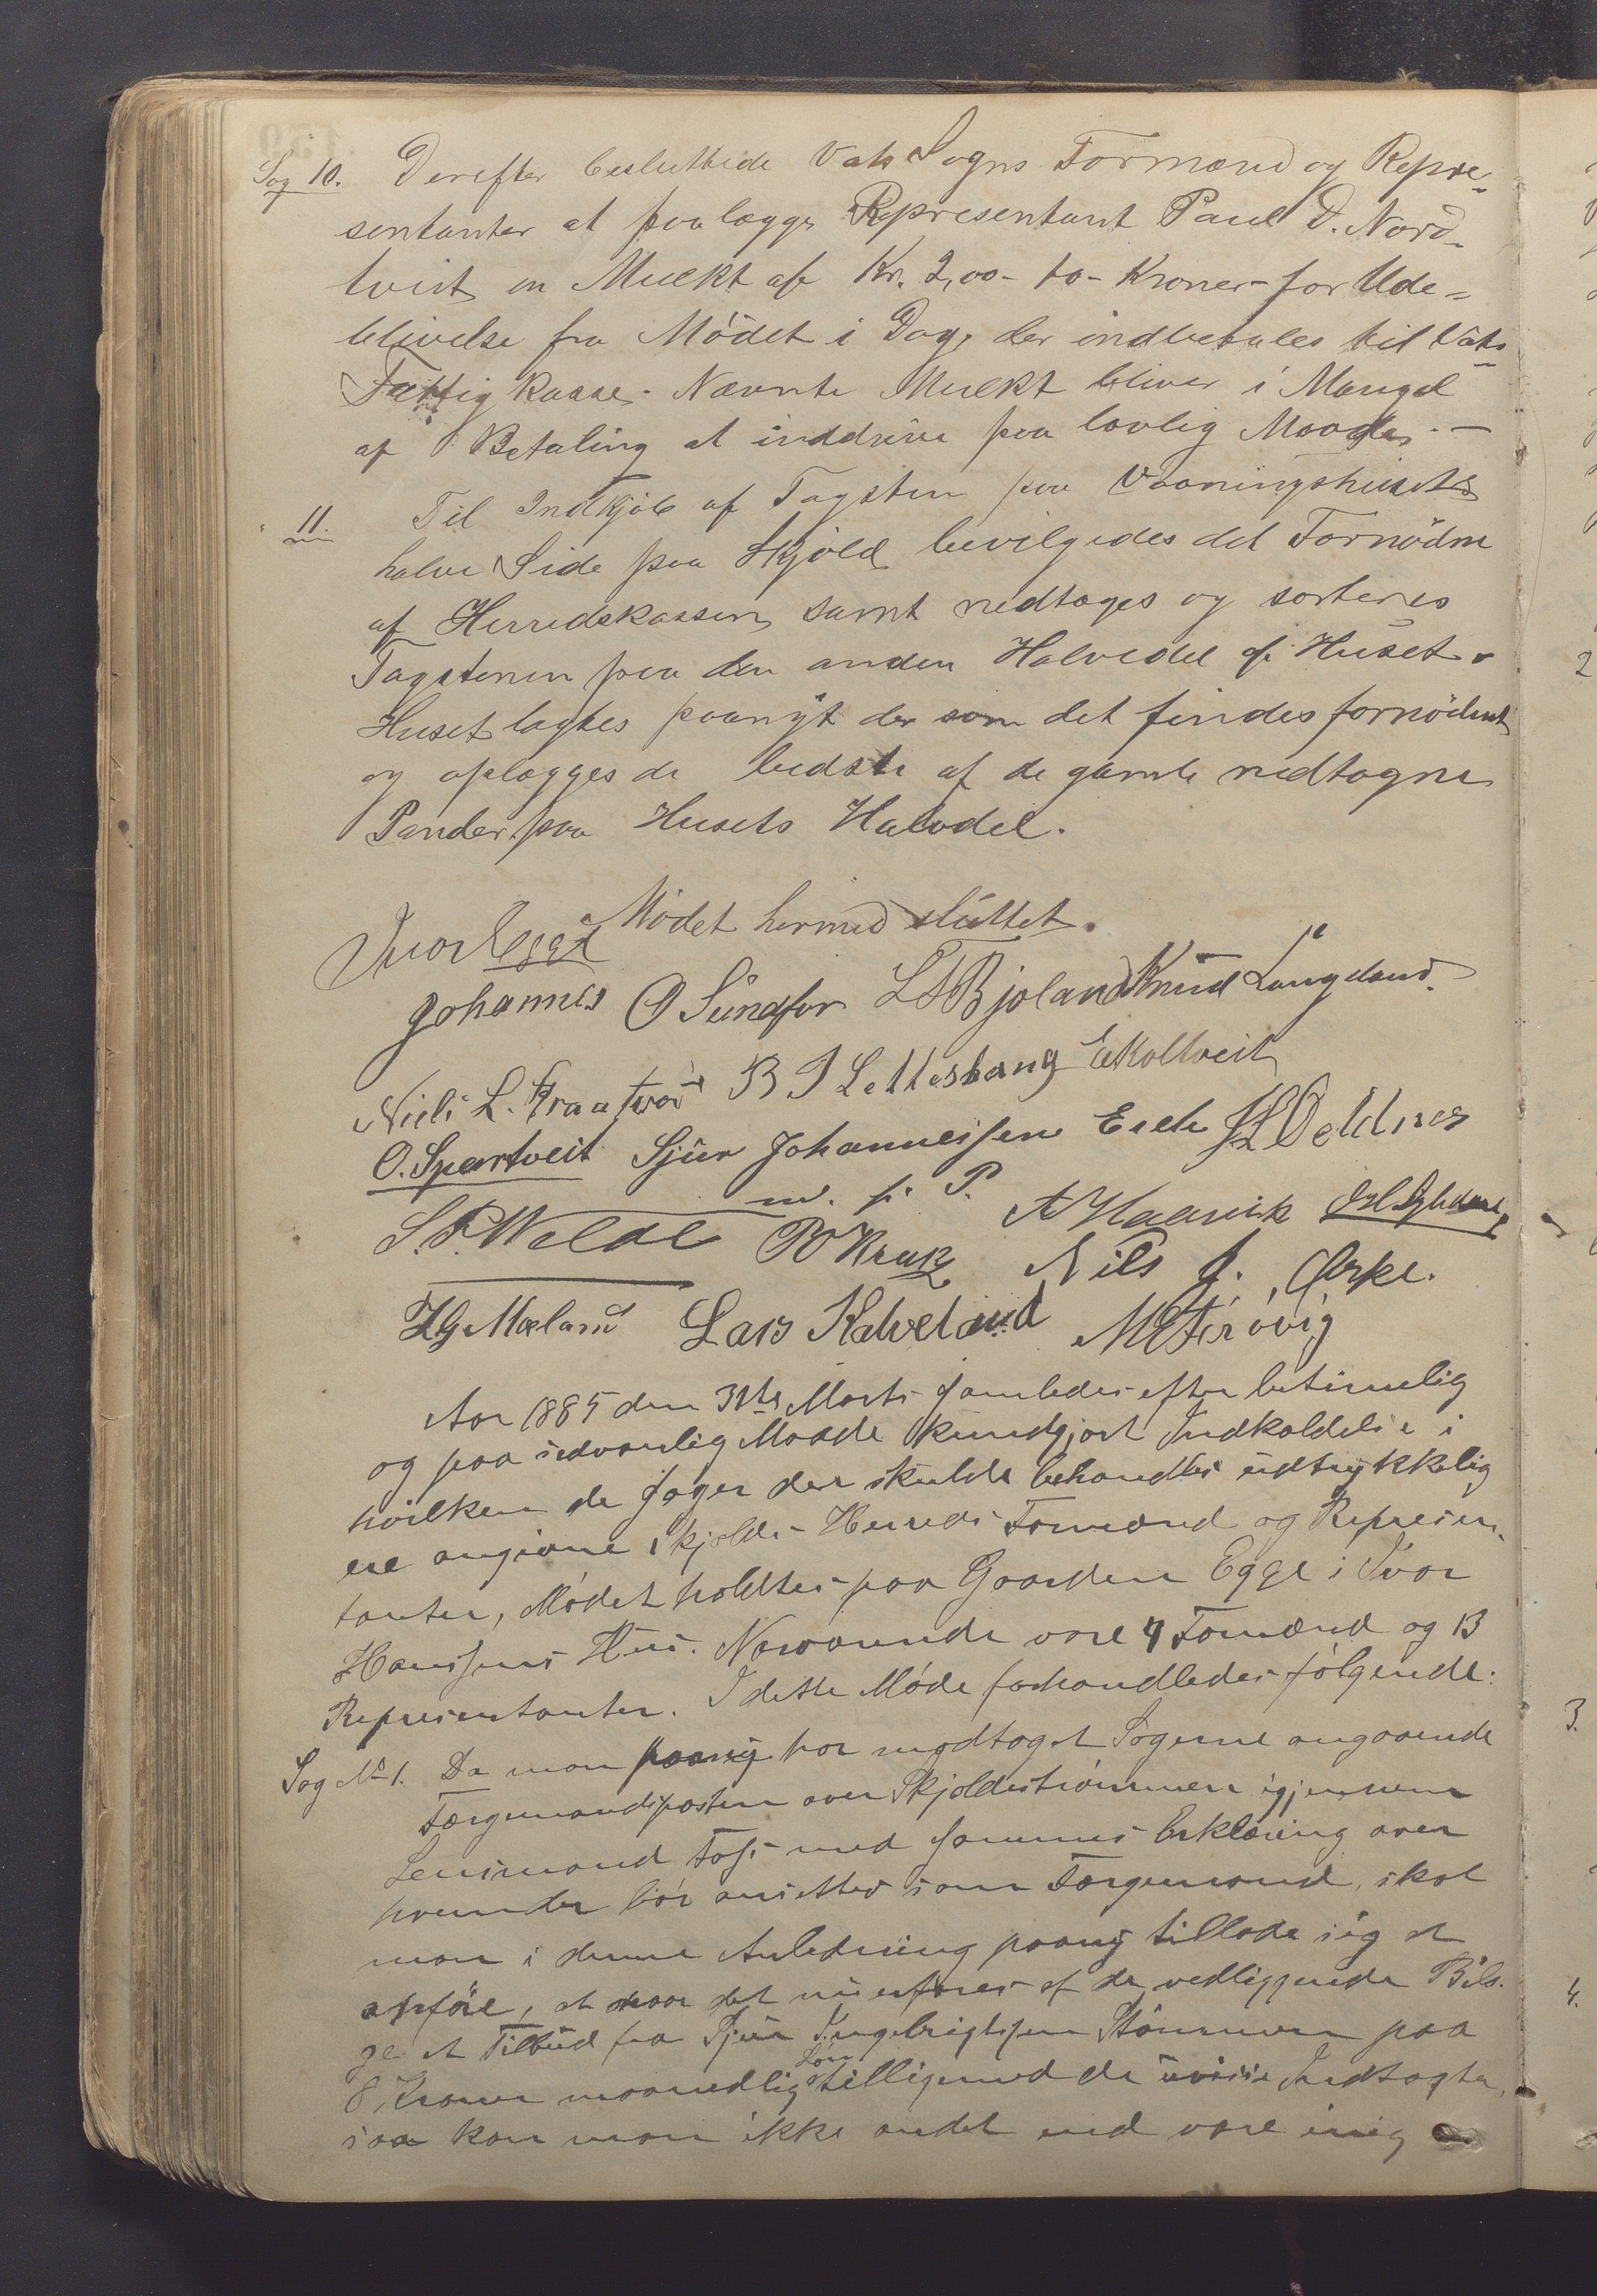 Sag 10. Derefter besluttede Vats Sogns Formænd og Repræ-
sentanter at paalægge Repræsentant Paul D. Nord-
tveit en Mulkt af Kr. 2,00 - to - Kroner for Ude-
blivelse fra Mødet i Dag, der indbetales til Vats
Fattigkasse. Nævnte Mulkt bliver i Mangel
af Betaling at inddrive paa lovlig Maade. —
11. Til Indkjøb af Tagsten paa Vaaningshusets
halve Side paa Skjold bevilgedes det Fornødne
af Herredskassen, samt nedtages og sorteres
Tagstenen paa den anden Halvedel af Huset.
Huset lægtes paanyt der som det findes fornødent
og oplægges de bedste af de gamle nedtagne
Pander paa Husets Halvdel.
Mødet hermed sluttet.
Ivar Egge
Johannes O Sundfør L T Bjoland Knud Langeland
Niels L. Kraatveit B J Lettesbang Eskoltveit
O. Spartveit Sjur Johannessen Eele
m. f. P.
S. P. Welde P O Krak A Haavik
Nils J. Ørke.
H G Mæland Lars Kalveland
Aar 1885 den 31te Marts samledes efter betimelig
og paa sedvanlig Maade kundgjort Indkaldelse i
hvilken de Sager der skulde behandles udtrykkelig
ere angivne Skjolds Herreds Formænd og Repræsen-
tanter, Mødet holdtes paa Gaarden Egge i Ivar
Hansens Hus. Nærværende vare 4 Formænd og 13
Repræsentanter. I dette Møde forhandledes følgende:
Sag No 1. Da man paany har modtaget Sagerne angaaende
Færgemandsposten over Skjoldestrømmen igjennem
Lensmand Foss med sammes Erklæring over
hvem der bør ansættes som Færgemand, skal
man i denne Anledning paany tillade sig at
anføre, at naar det nu erfares af de vedliggende Bila-
ge et Tilbud fra Sjur Ingebrigtsen Strømmen paa
8 Kroner maanedlig Løn tilligemed de uvisse Indtægter,
saa kan man ikke andet end være enig